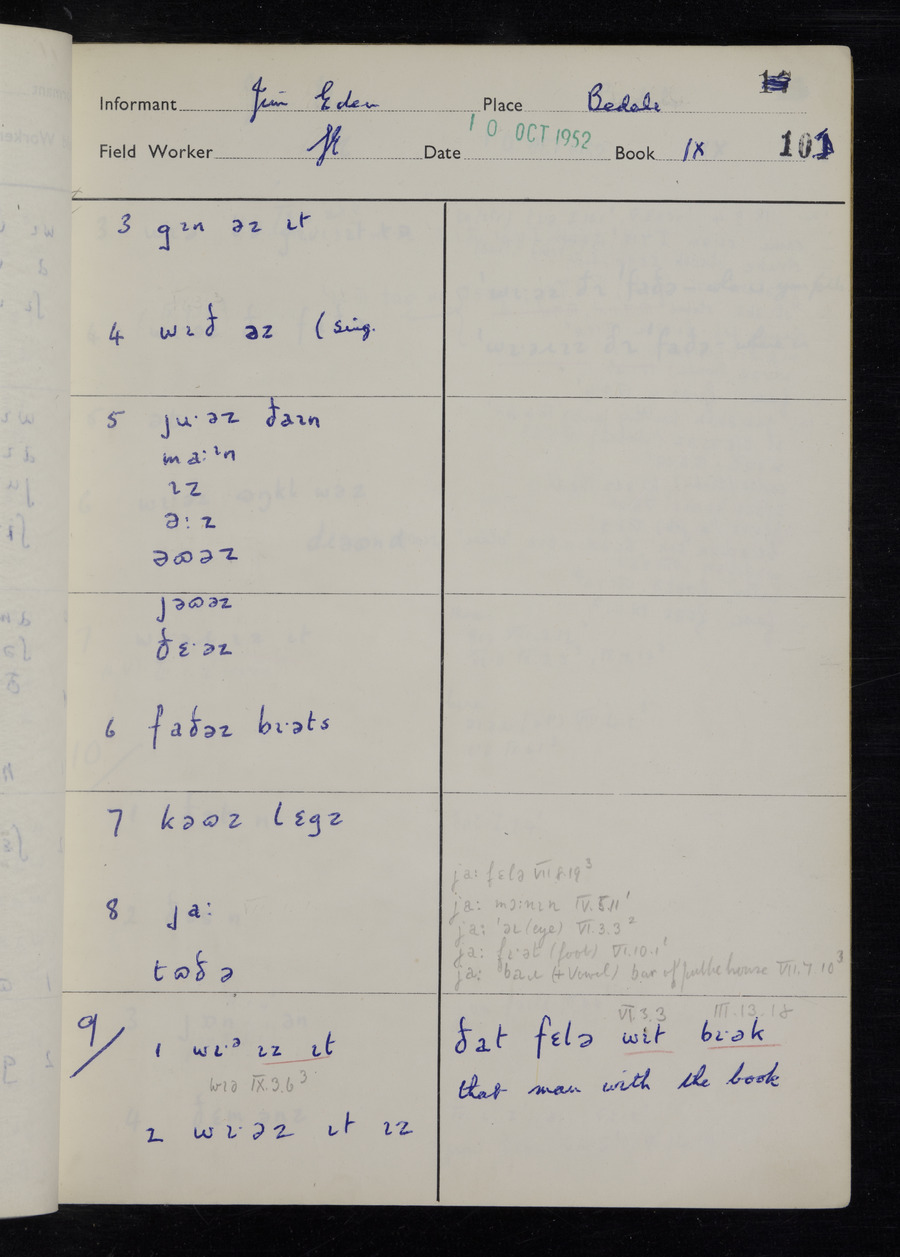 Informant Jim Eden Place Bedale
Field Worker Date 10 OCT 1952 Book IX 101
3 gɪn əz ɪt
4 wɪð əz (sing.
5 ju·əz ðaɪn
ma:ɪn
ɪz
ə:z
əʊəz
jəʊəz
ðɛ·əz
6 faðəz bɪ·əts
7 kəʊz lɛgz
8 ja:
tʊðə
ja: fɛlə VII.8.19³
ja: mɔ:nɪn IV.5.11¹
ja: 'əɪ (eye) VI.3.3²
ja: fɪ·ət (foot) VI.10.1¹
ja: baɹ (+ vowel) bar of public house VII.7.10³
9/ 1 wɪ·ə ɪz ɪt
wɪə IX.3.6³
2 wɪ·əz ɪt ɪz
VI.3.3 III.13.18
ðat fɛlə wɪt bɪ·ək
that man with the book